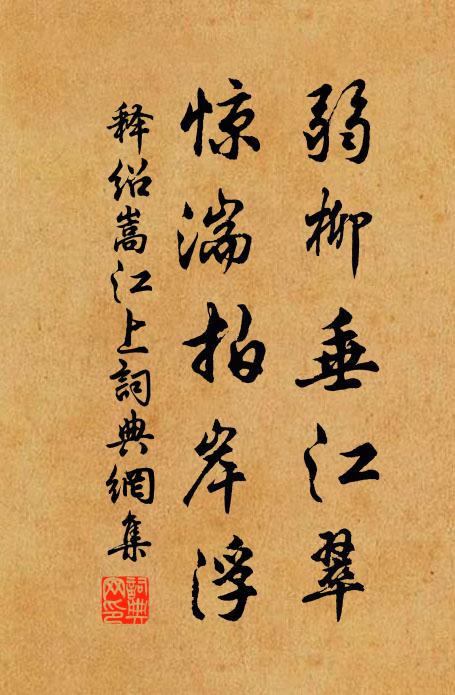 弱柳垂江翠
惊湍拍岸浮
释绍嵩江上詞典網集
詞典网印